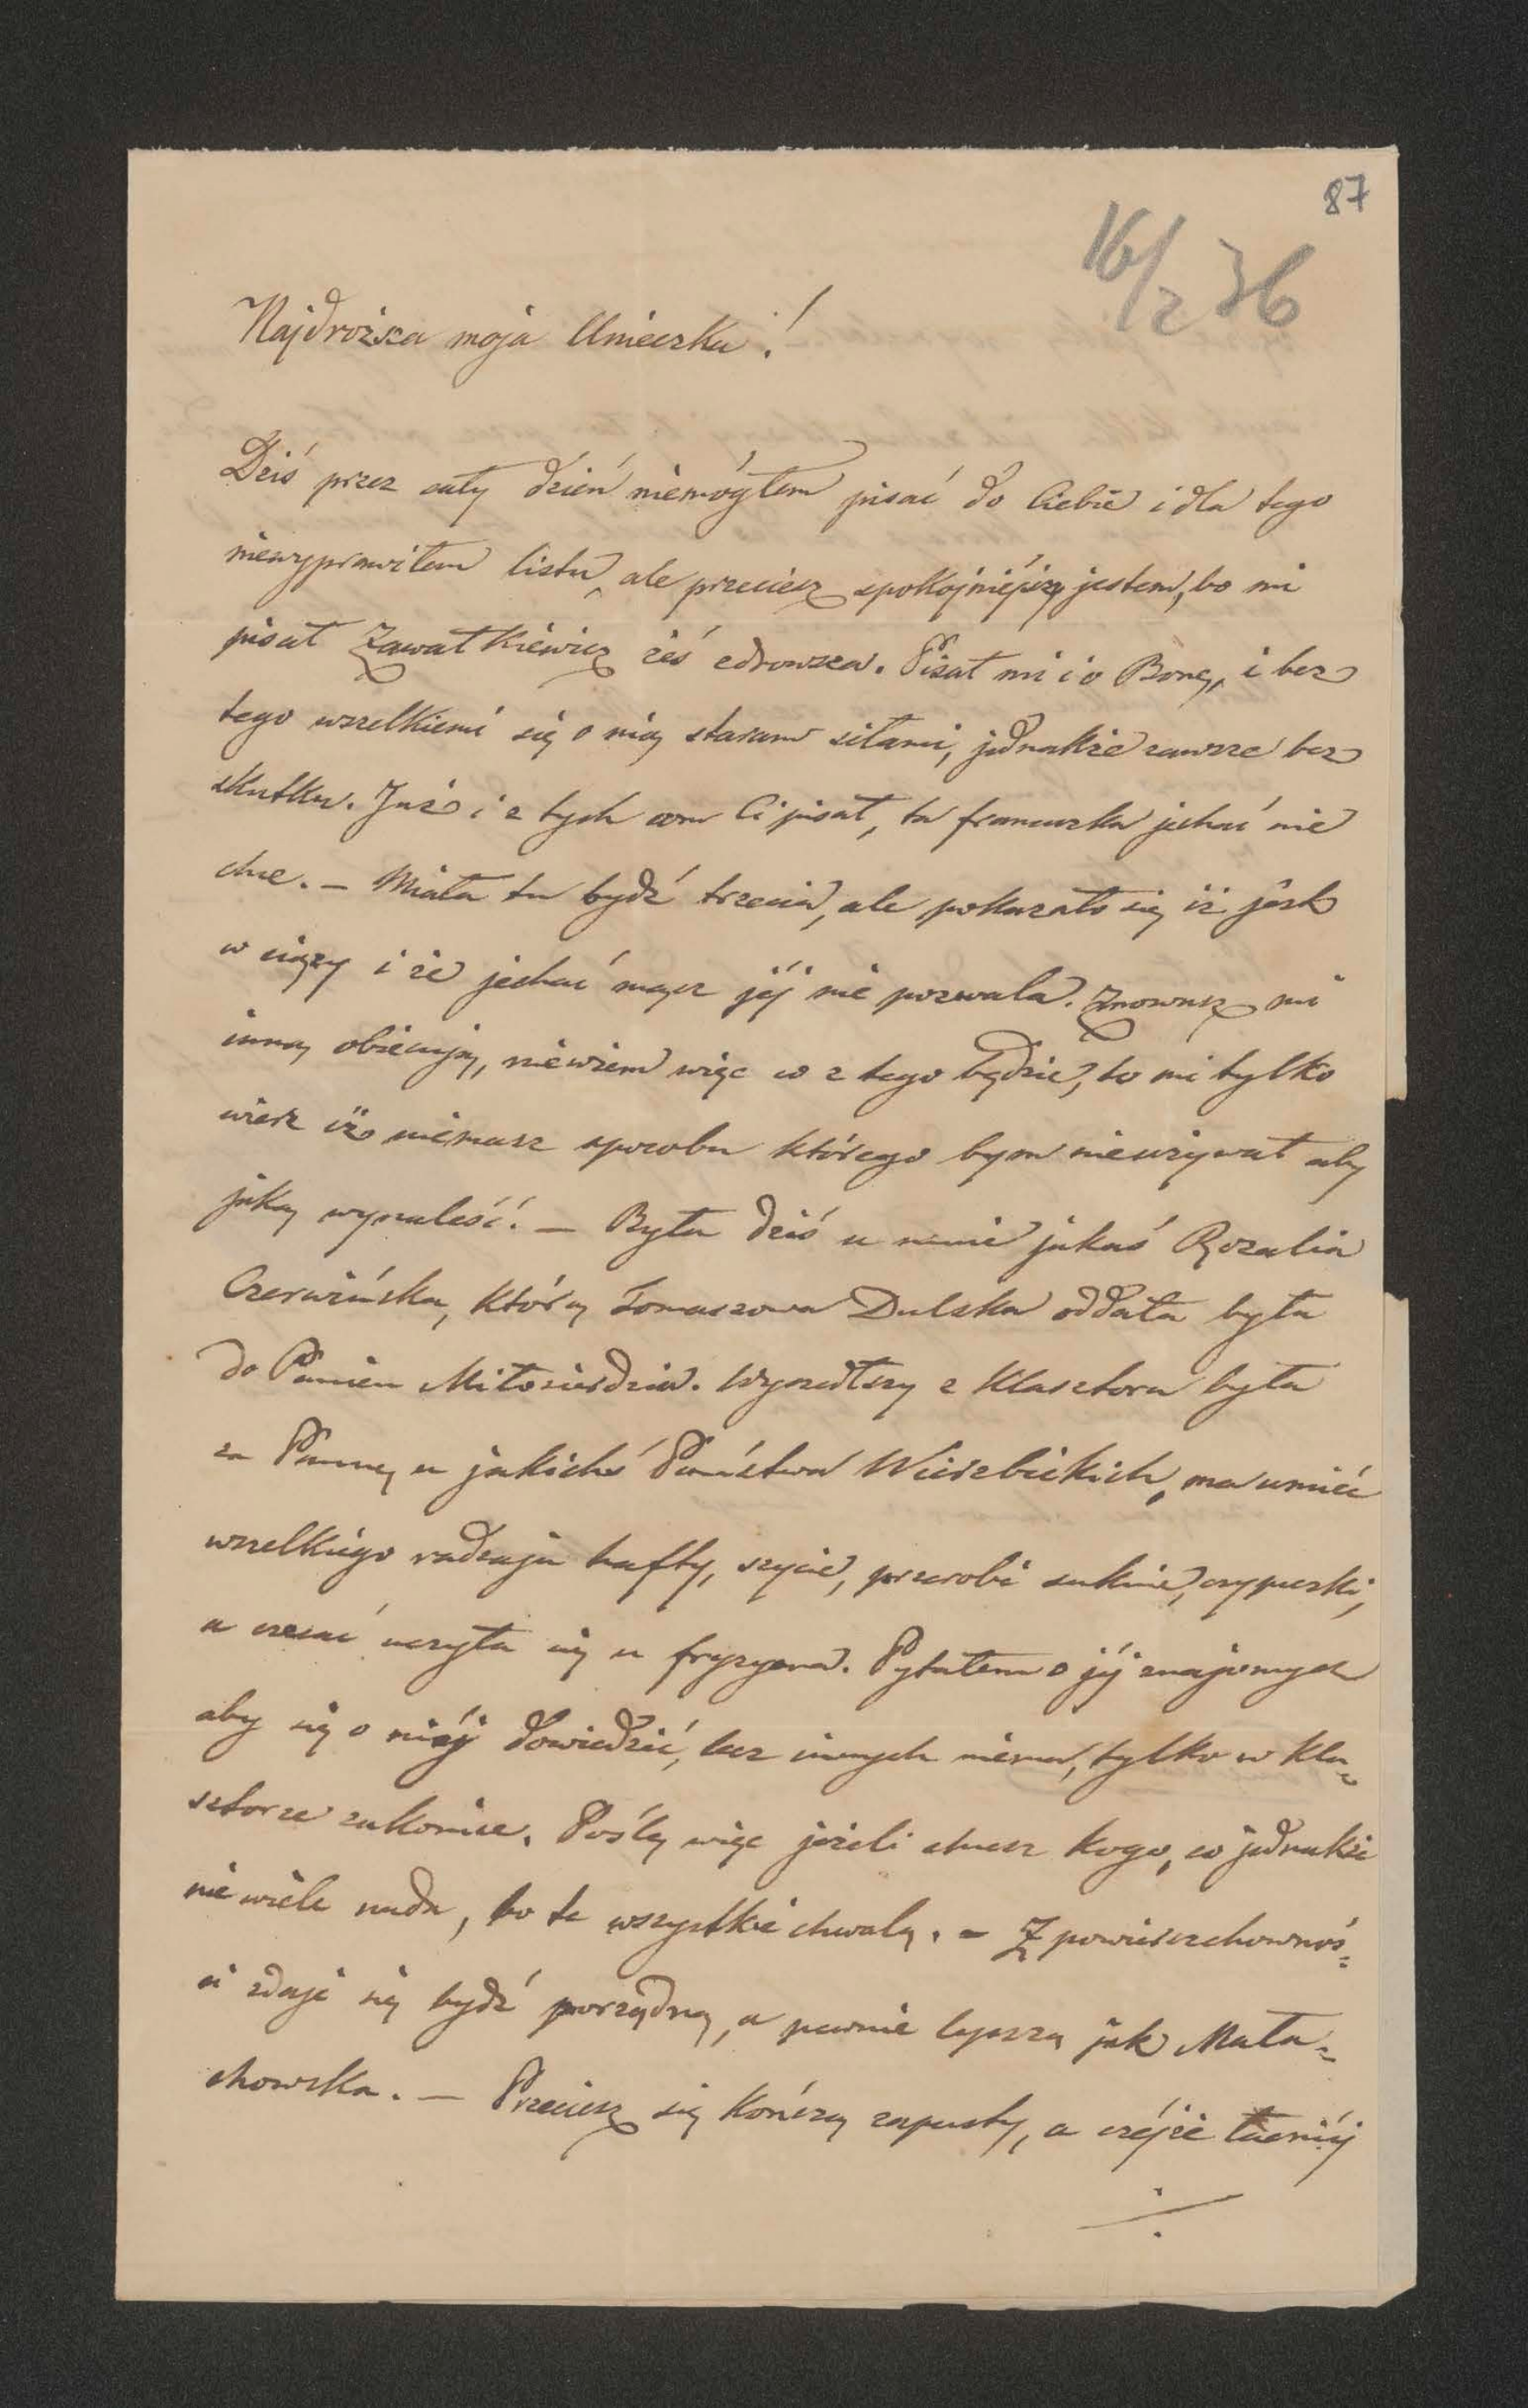 87
16/2 36
Najdroższa moja Unieczku!
Dziś przez cały dzień niemógłem pisać do Ciebie i dla tego
niewyprawiłem listu, ale przeciesz spokojniejszy jestem, bo mi
pisał Zawałkiewicz żeś zdrowsza. Pisał mi i o Bonę, i bez
tego wszelkiemi się o nią staram siłami, jednakże zawsze bez
skutku. Już i z tych com Ci pisał, ta francuzka jechać nie
chce. – Miała tu bydź trzecia, ale pokazało się iż jest
w ciąży i że jechać mąsz jéj nie pozwala. Znowusz mi
inną obiecują, niewiem więc co z tego będzie, to mi tylko
wiesz iż niemasz sposobu którego bym nieużywał aby
jaką wynaleść. – Była dziś u mnie jakaś Rozalia
Czerwińska, którą Tomaszowa Dulska oddała była
do Panien Miłosierdzia. Wyszedłszy z Klasztoru była
za Pannę u jakichś Państwa Wierzbickich, ma umieć
wszelkiego rodzaju hafty, szycie, przerobi suknie, czypeczki,
a czesać uczyła się u fryzyera. Pytałem o jéj znajomych
aby się o niéj dowiedzić, lecz innych niema, tylko w Kla=
sztorze zakonice. Poślę więc jeżeli chcesz kogo, co jednakże
nie wiele nada, bo te wszystkie chwalą. – Z powierzchownoś=
ci zdaje się bydź porządną, a pewnie lepszą jak Mała=
chowska. – Przeciesz się kończą zapusty, a czéjże łacniéj